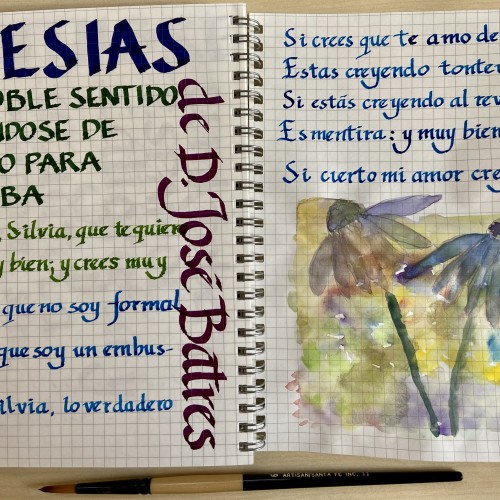 ESIAS
OBLE SENTIDO
NDOSE DE
O PARA
BA
, Silvia, que te quiero
y bien; y crees muy
que no soy formal
que soy un embus-
ilvia, lo verdadero
de D. José Batres
Si crees que te amo de
Estas creyendo tonter
Si estás creyendo al rev
Es mentira: y muy bien
Si cierto mi amor cre
ARTISAN/SANTA FE INC.